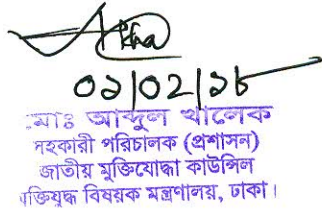 ০১/০২/১৮
মোঃ আব্দুল খালেক
সহকারী পরিচালক (প্রশাসন)
জাতীয় মুক্তিযোদ্ধা কাউন্সিল
মুক্তিযুদ্ধ বিষয়ক মন্ত্রণালয়, ঢাকা।